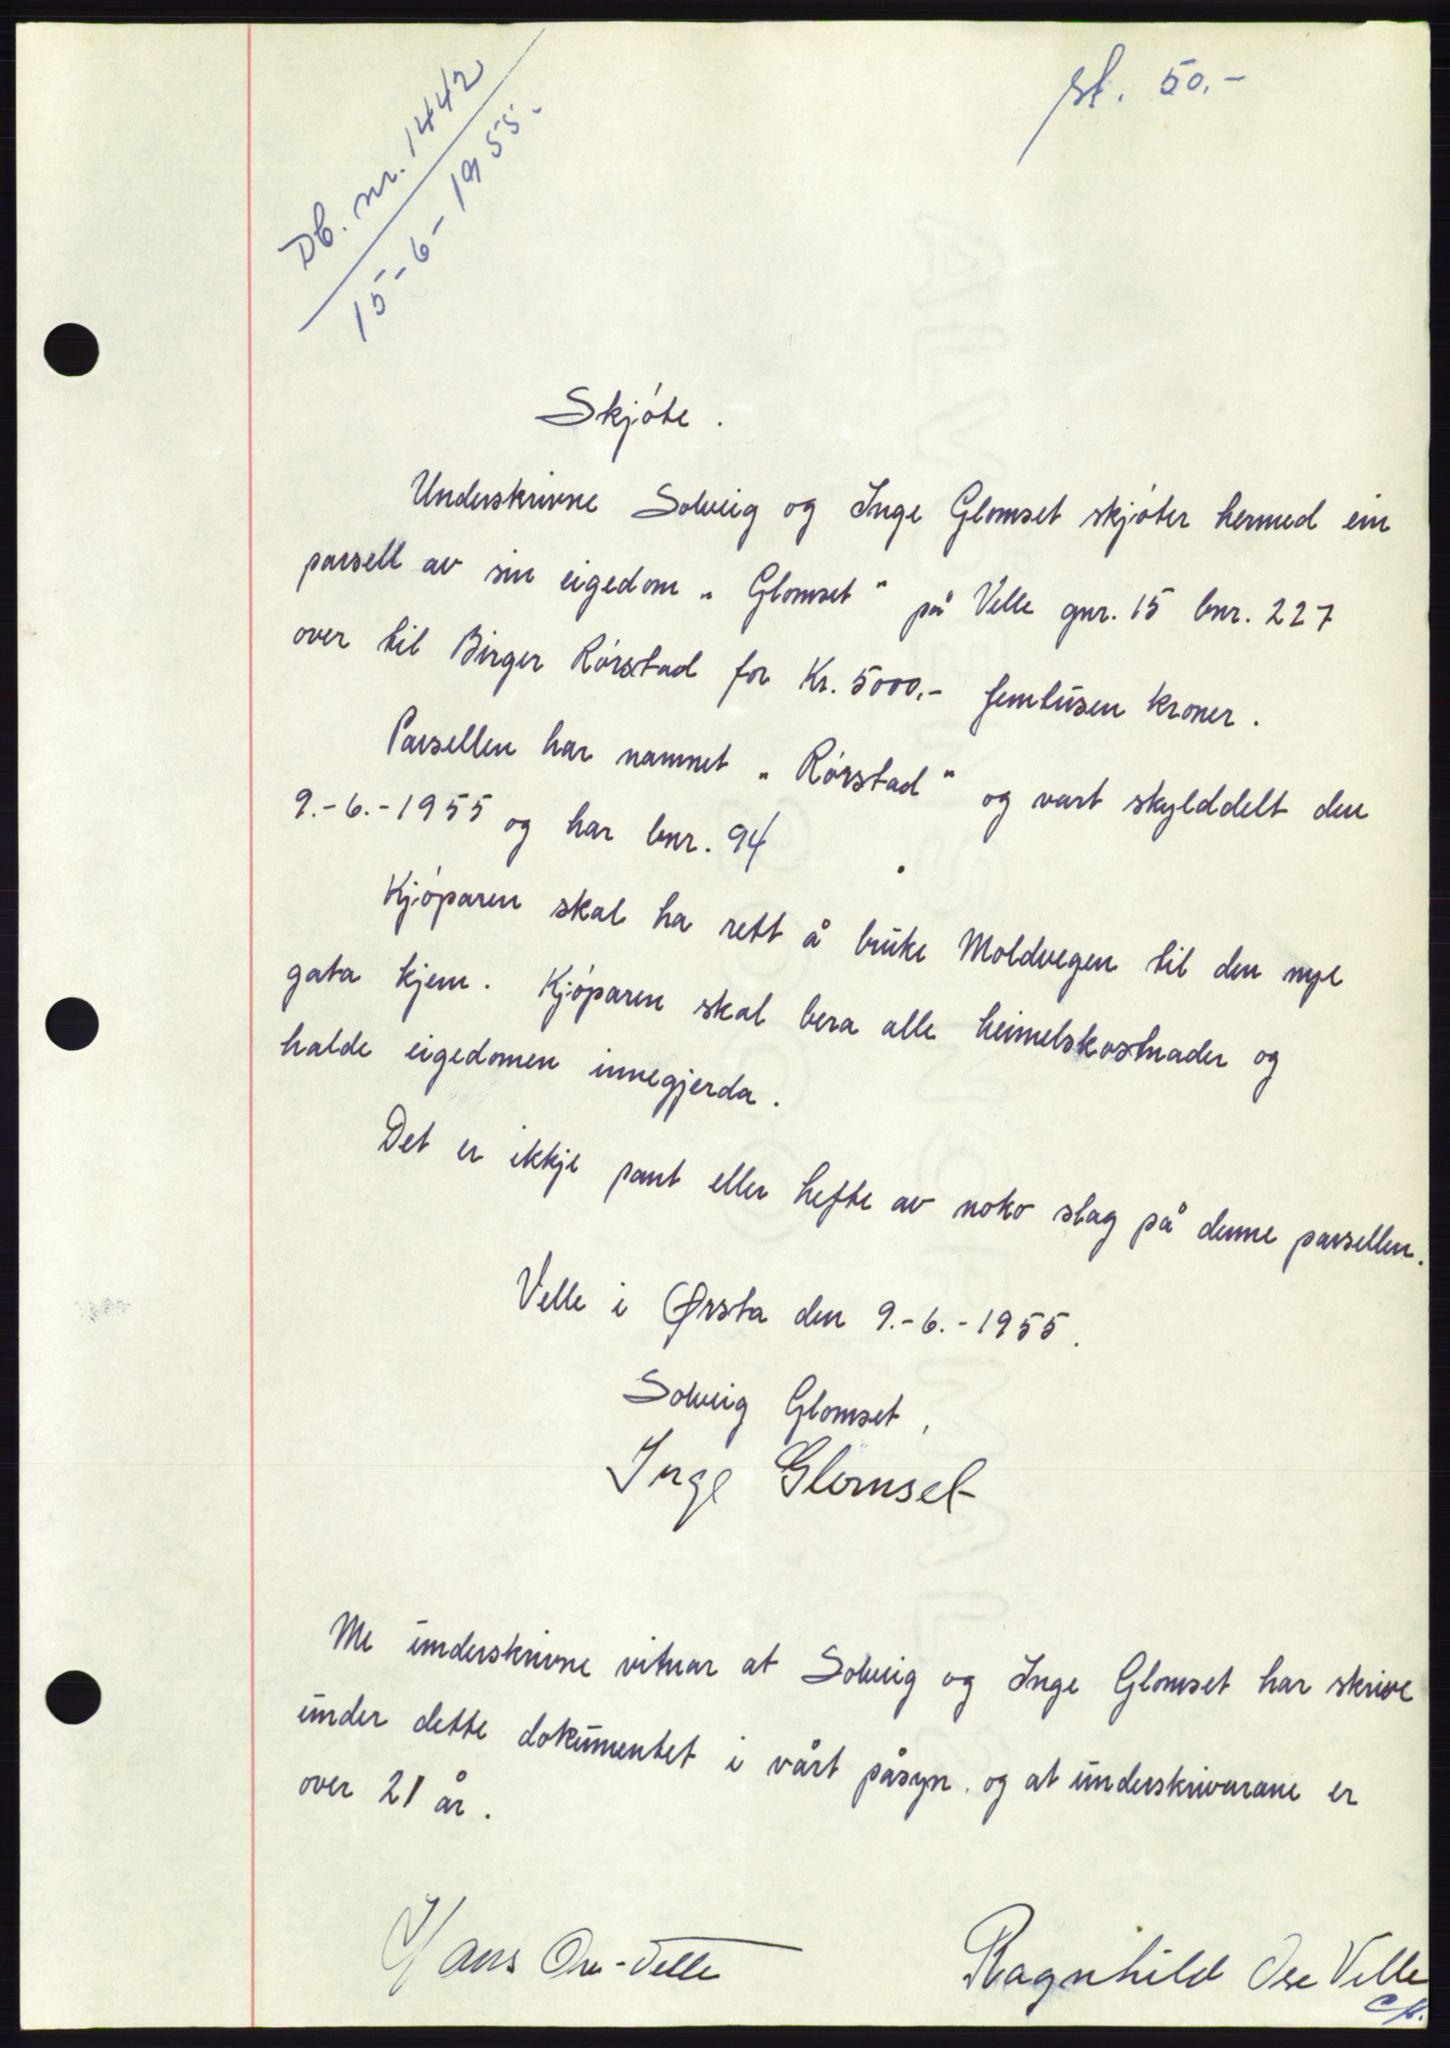 st. 50.-
Db. nr. 1442
15-6-1955.
Skjóte.
Underskrivne Solveig og Inge Glomset skjóter hermed ein
parsell av sin eigedom „Glomset" på Velle gnr. 15 bnr. 227
over til Birger Rórstad for Kr. 5000.- femtusen kroner.
Parsellen har namnet „Rórstad" og vart skylddelt den
9.-6.-1955 og har bnr. 94
Kjóparen skal ha rett å bruke Moldvegen til den nye
gata kjem. Kjóparen skal bera alle heimelskostnader og
halde eigedomen innegjerda.
Det er ikkje pant eller hefte av noko slag på denne parsellen.
Velle i Ørsta den 9.-6.-1955.
Solveig Glomset,
Inge Glomset
Me underskrivne vitnar at Solveig og Inge Glomset har skrive
under dette dokumentet i vårt påsyn. og at underskrivarane er
over 21 år.
Hans Ose-Velle
Ragnhild Ose Velle